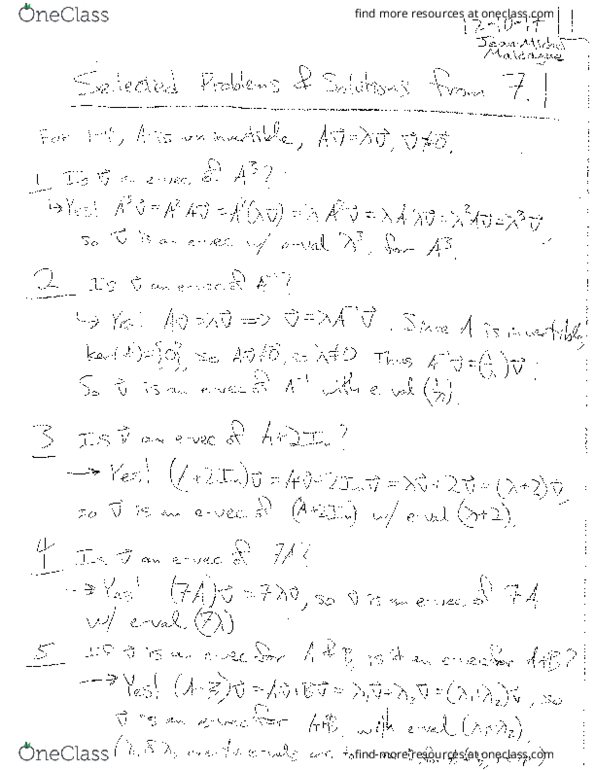 OneClass
find more resources at oneclass.com
12-10-17
Jean-Michel
Selected Problems & Solutions from 7.1
For 1-4, A is an invertible, Av⃗=λv⃗, v⃗≠0⃗.
1 Is v⃗ an e-vec of A³?
↳ Yes! A³v⃗=A²Av⃗=A²(λv⃗)=λA²v⃗=λAλv⃗=λ²Av⃗=λ³v⃗,
so v⃗ is an e-vec w/ e-val λ³, for A³.
2 Is v⃗ an e-vec of A⁻¹?
↳ Yes! Av⃗=λv⃗ ⟹ v⃗=λA⁻¹v⃗. Since A is invertible,
ker(A)={0}, so Av⃗≠0, λ≠0 Thus A⁻¹v⃗=(1/λ)v⃗.
So v⃗ is an e-vec of A⁻¹ with e-val (1/λ).
3 Is v⃗ an e-vec of A+2Iₙ?
→ Yes! (A+2Iₙ)v⃗=Av⃗+2Iₙv⃗=λv⃗+2v⃗=(λ+2)v⃗,
so v⃗ is an e-vec of (A+2Iₙ) w/ e-val (λ+2).
4 Is v⃗ an e-vec of 7A?
→ Yes! (7A)v⃗=7λv⃗, so v⃗ is an e-vec of 7A
w/ e-val (7λ)
5 If v⃗ is an e-vec for A & B, is it an e-vec for A+B?
→ Yes! (A+B)v⃗=Av⃗+Bv⃗=λ₁v⃗+λ₂v⃗=(λ₁+λ₂)v⃗, so
v⃗ is an e-vec for A+B, with e-val (λ₁+λ₂).
OneClass
find more resources at oneclass.com